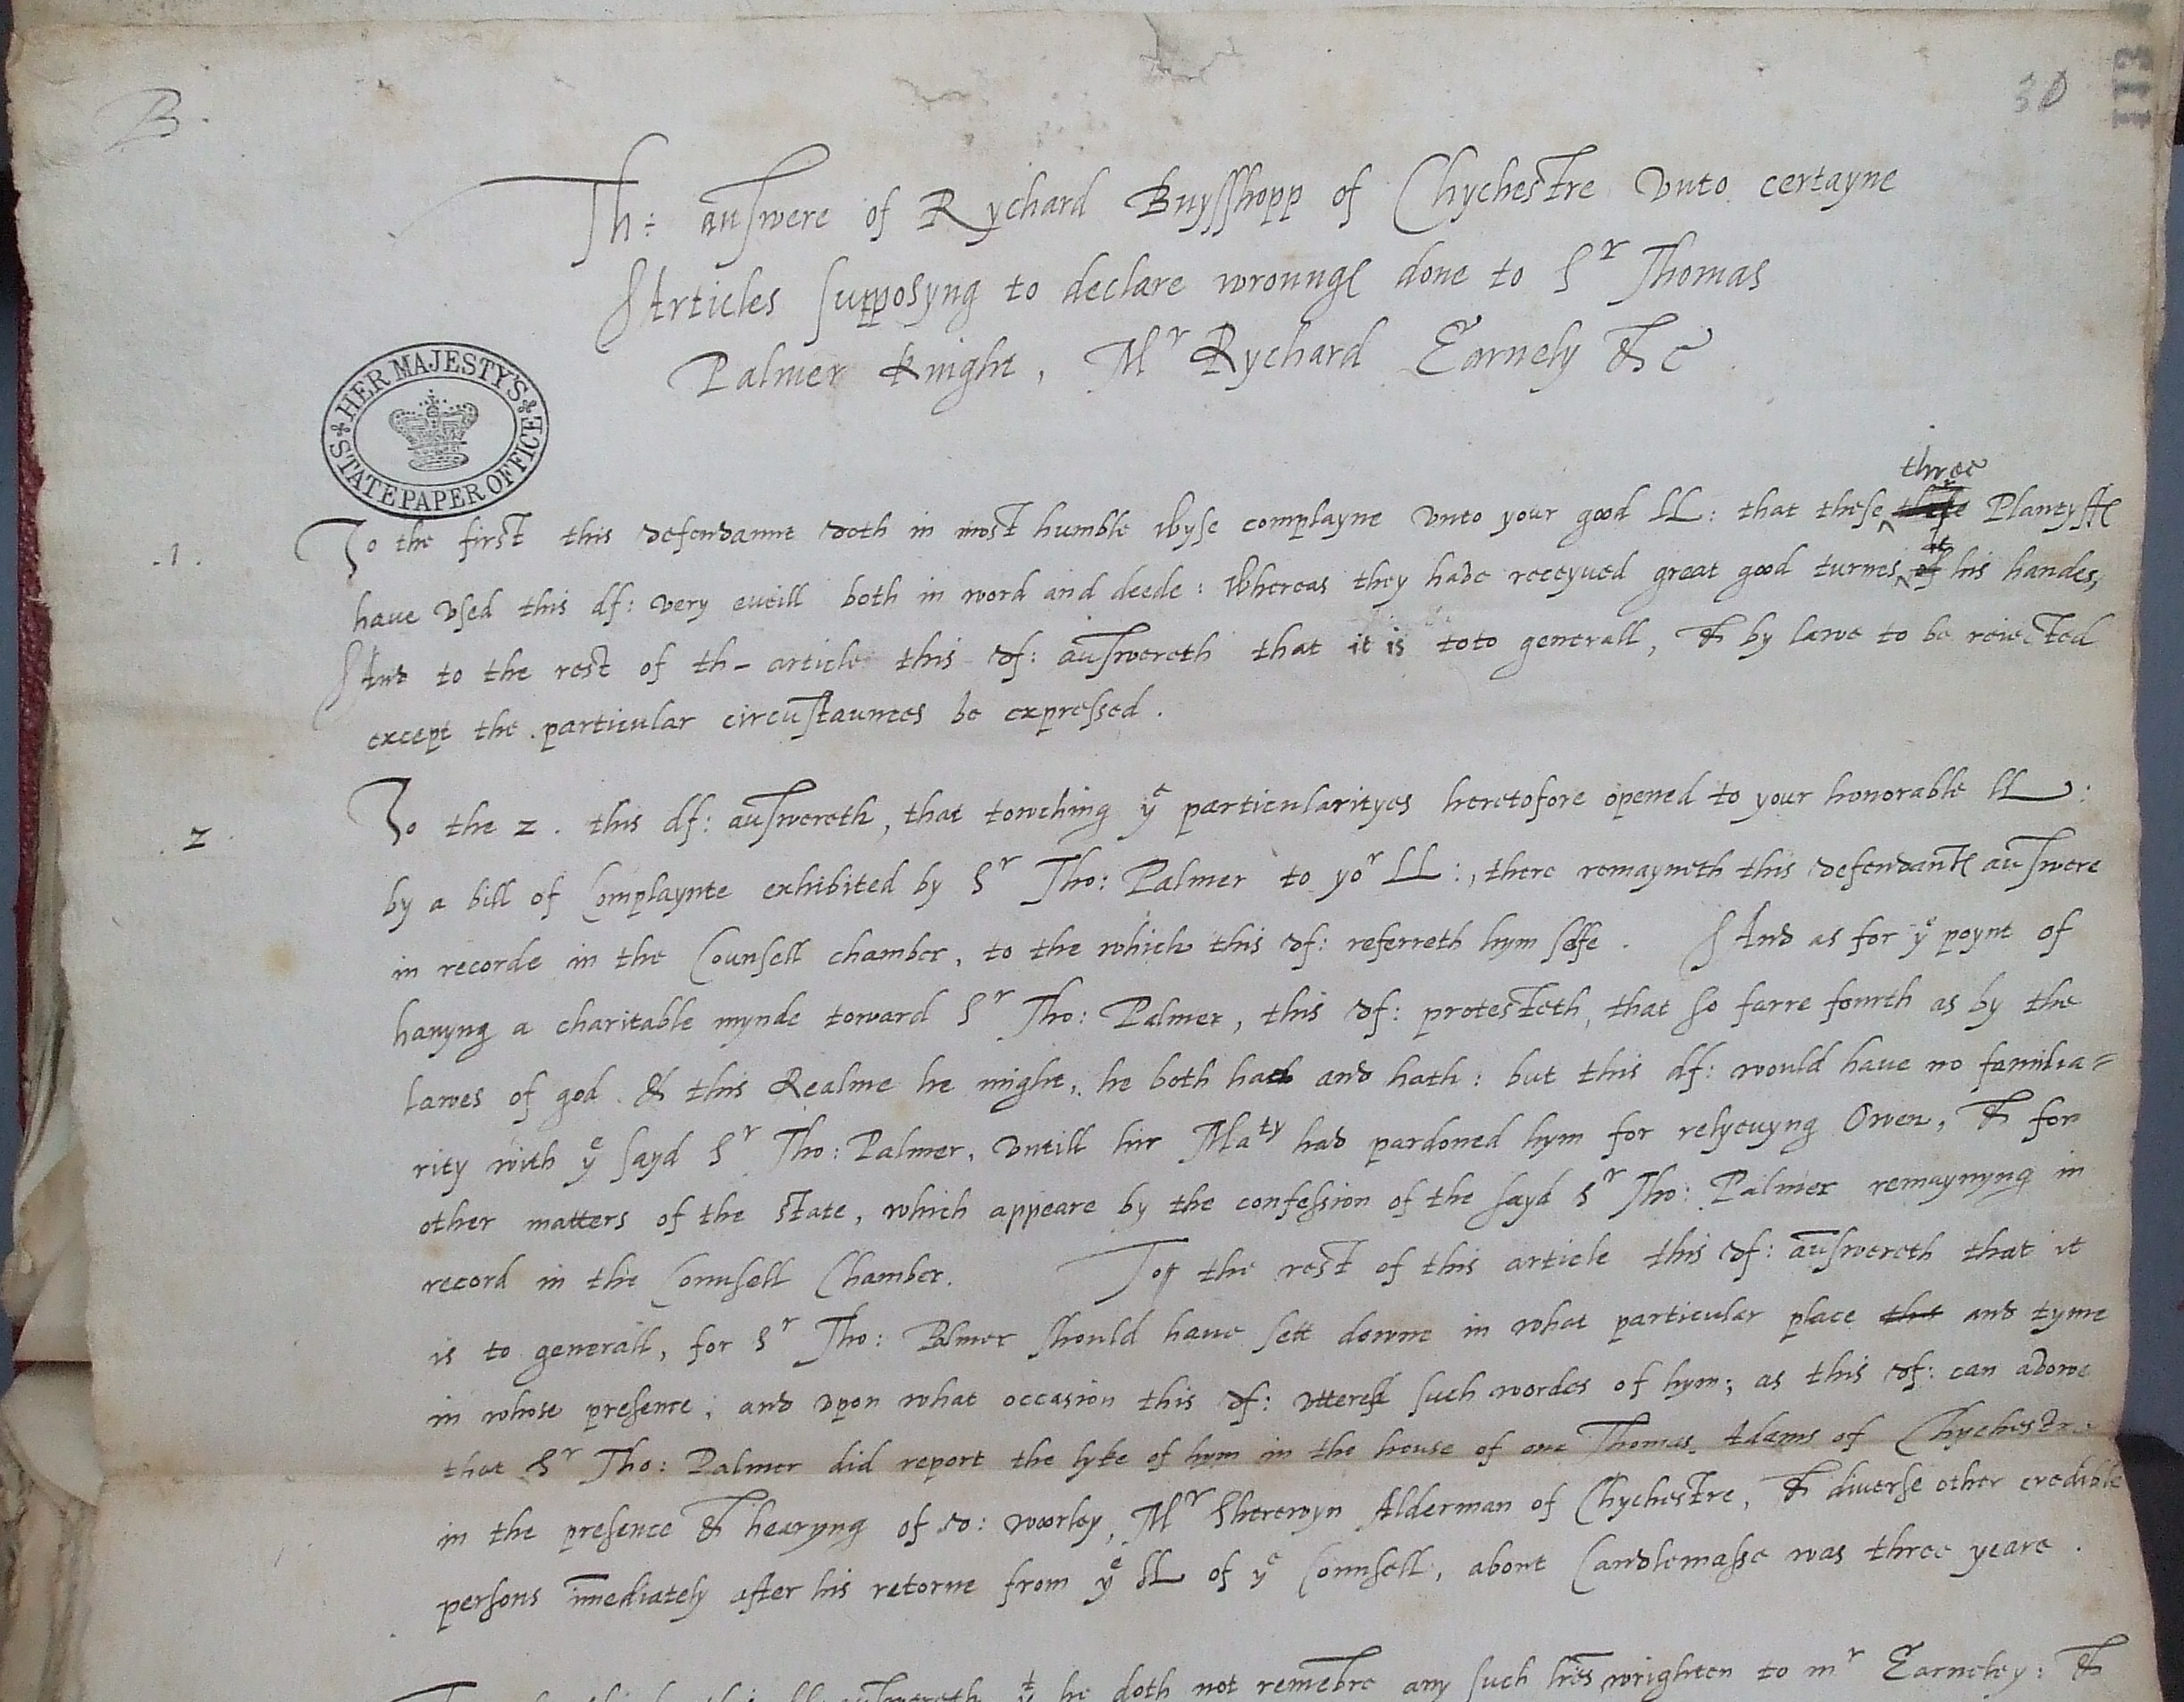 B.
30
113
Th: answere of Rychard Buysshopp of Chychestre vnto certayne
Articles supposyng to declare wrounges done to Sr Thomas
Palmer knight, Mr Rychard Earnely &c
HER MAJESTY'S STATE PAPER OFFICE
three
.1. To the first this defendannt doth in most humble wyse complayne vnto your good LL: that these Plantyffes
at
have vsed this df: very eueill both in word and deede: whereas they have receyued great good turnes of his handes,
And to the rest of th- article this df: answereth that it is toto generall, & by lawe to be reiected
except the particular circustaunces be expressed.
2. To the 2. this df: answereth, that towching ye particularityes heretofore opened to your honorable LL:
by a bill of Complaynte exhibited by Sr Tho: Palmer to yor LL:, there remayneth this defendantes answere
in recorde in the Counsell chamber, to the which this df: referreth hym selfe. And as for ye poynt of
hauyng a charitable mynde toward Sr Tho: Palmer, this df: protesteth, that so farre fourth as by the
lawes of god & this Realme he might, he both had and hath: but this df: would have no familia=
rity with ye sayd Sr Tho: Palmer, vntill hir Maty had pardoned hym for relyeuyng Owen, & for
other matters of the state, which appeare by the confession of the sayd Sr Tho: Palmer remaynyng in
record in the Counsell Chamber. To the rest of this article this df: answereth that it
is to generall, for Sr Tho: Palmer should have sett downe in what particular place the and tyme
in whose presence, and vpon what occasion this df: vttered such wordes of hym; as this df: can avowe
that Sr Tho: Palmer did report the lyke of hym in the house of one Thomas Adams of Chychestre
in the presence & hearyng of D: worley, Mr Sherewyn Alderman of Chychestre, & diuerse other credible
persons imediately after his retorne from ye LL of ye Counsell, about Candlemasse was three yeare.
he doth not remebre any such lres wrighten to mr Earneley: &